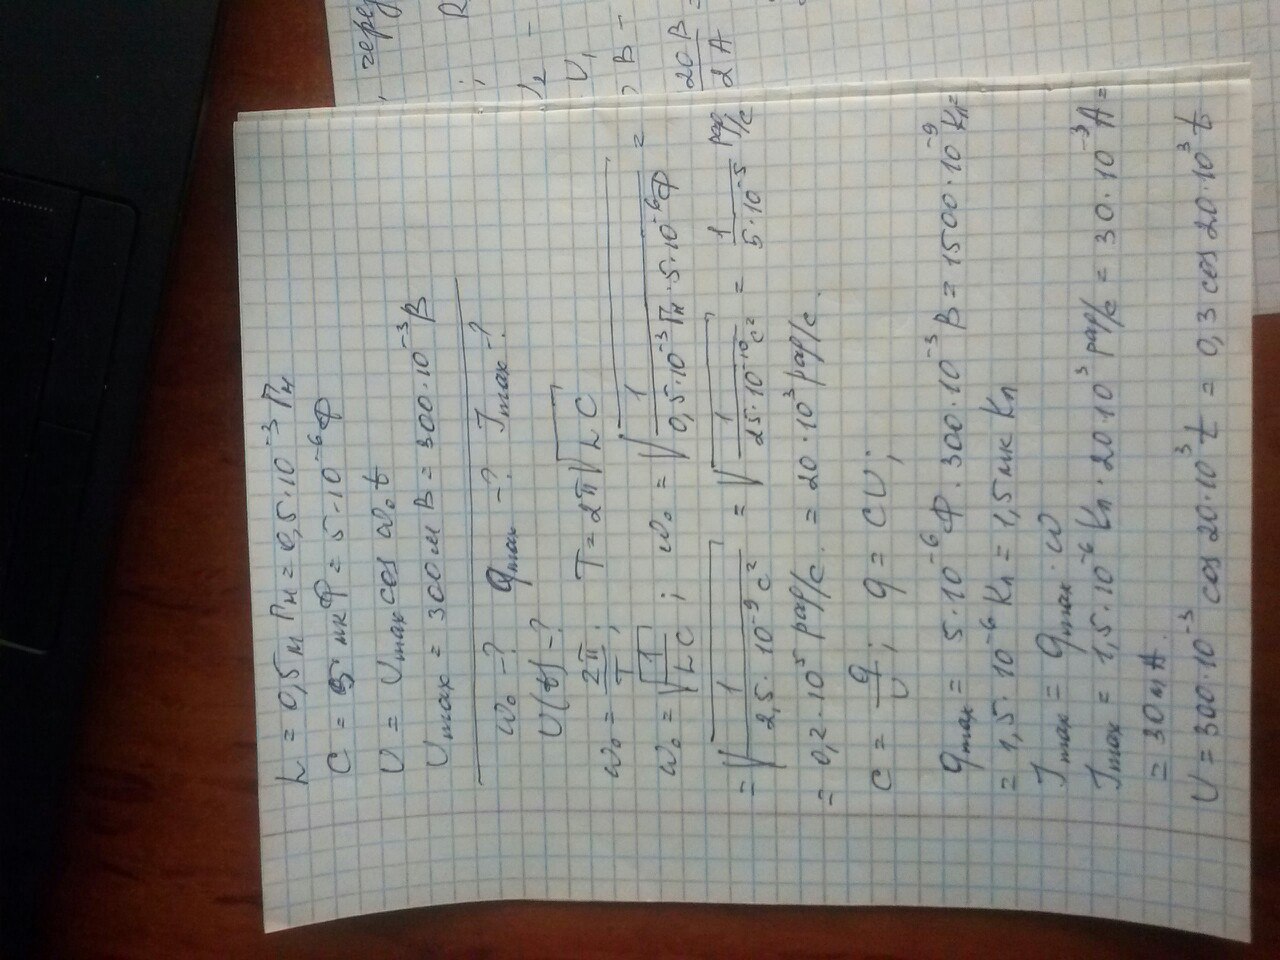 L = 0,5м Гн = 0,5·10⁻³ Гн
C = 5 мкФ = 5·10⁻⁶ Ф
U = Umax cos ω₀t
Umax = 300мВ = 300·10⁻³ В
ω₀ -? qmax -? Jmax -?
U(t) -?
ω₀ = 2π/T; T = 2π√LC
ω₀ = √1/LC; ω₀ = √1/0,5·10⁻³ Гн·5·10⁻⁶Ф =
= √1/2,5·10⁻⁹ с² = √1/25·10⁻¹⁰ с² = 1/5·10⁻⁵ рад/с
= 0,2·10⁵ рад/с. = 20·10³ рад/с.
C = q/U; q = CU;
qmax = 5·10⁻⁶ Ф·300·10⁻³ В = 1500·10⁻⁹ Кл =
= 1,5·10⁻⁶ Кл = 1,5 мк Кл
Jmax = qmax·ω
Jmax = 1,5·10⁻⁶ Кл·20·10³ рад/с = 30·10⁻³ А =
= 30мА.
U = 300·10⁻³ cos 20·10³ t = 0,3 cos 20·10³ t
, через
; R
U₁
, В -
20В/2А =